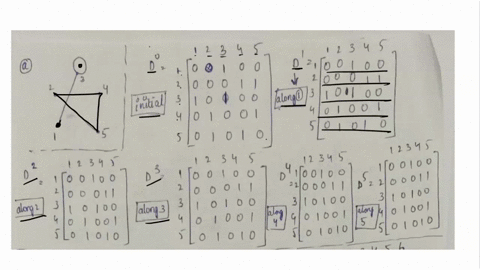 a
3
2 4
1 5
D⁰ =
initial
1 2 3 4 5
1 0 0 1 0 0
2 0 0 0 1 1
3 1 0 1 0 0
4 0 1 0 0 1
5 0 1 0 1 0
D¹ =
along 1
1 2 3 4 5
1 0 0 1 0 0
2 0 0 0 1 1
3 1 0 1 0 0
4 0 1 0 0 1
5 0 1 0 1 0
D² =
along 2
1 2 3 4 5
1 0 0 1 0 0
2 0 0 0 1 1
3 1 0 1 0 0
4 0 1 0 0 1
5 0 1 0 1 0
D³ =
along 3
1 2 3 4 5
1 0 0 1 0 0
2 0 0 0 1 1
3 1 0 1 0 0
4 0 1 0 0 1
5 0 1 0 1 0
D⁴ =
along 4
1 2 3 4 5
1 0 0 1 0 0
2 0 0 0 1 1
3 1 0 1 0 0
4 0 1 0 0 1
5 0 1 0 1 0
D⁵ =
along 5
1 2 3 4 5
1 0 0 1 0 0
2 0 0 0 1 1
3 1 0 1 0 0
4 0 1 0 0 1
5 0 1 0 1 0